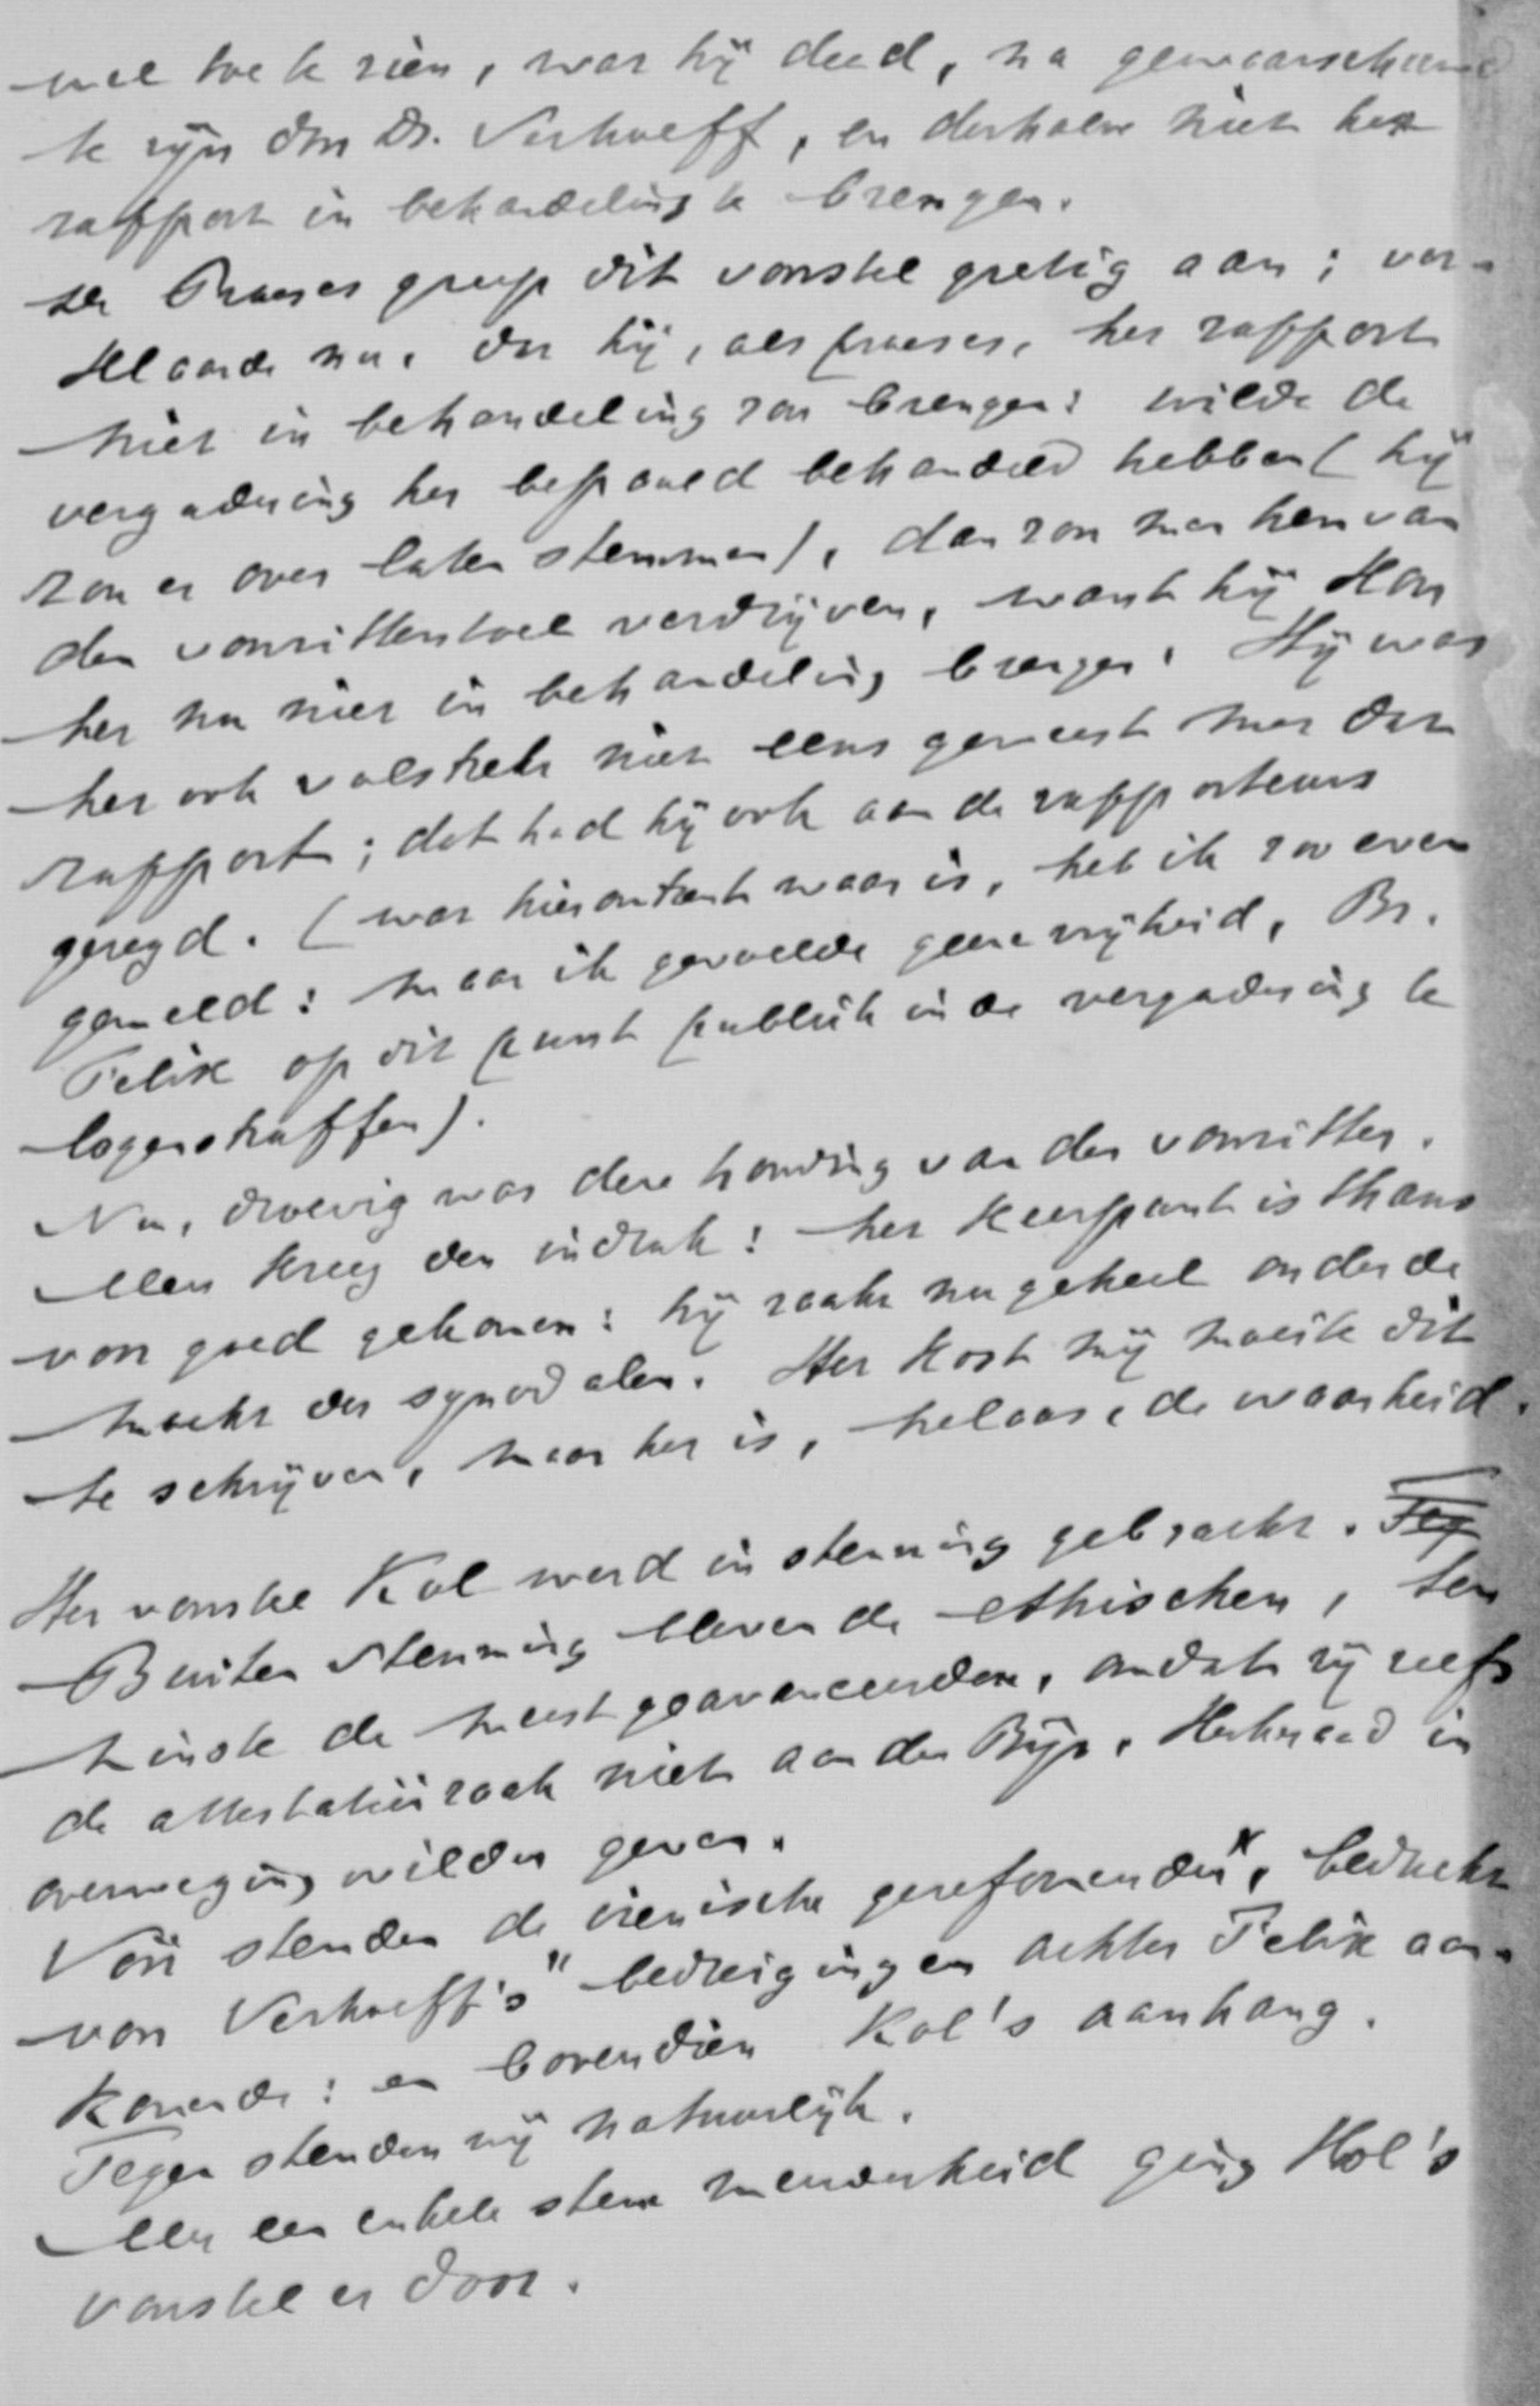 wel toe te zien, wat hij deed, na gewaarschuwd
te zijn door Ds. Verhoeff, en derhalve niet het
rapport in behandeling te brengen.
De Praeses greep dit voorstel gretig aan; ver-
klaarde nu, dat hij, als praeses, het rapport
niet in behandeling zou brengen: wilde de
vergadering het bepaald behandeld hebben (hij
zou er over laten stemmen), dan zou men hem van
den voorzittersstoel verdrijven, want hij kon
het nu niet in behandeling brengen. Hij was
het ook volstrekt niet eens geweest met dat
rapport; dat had hij ook aan de rapporteurs
gezegd. (wat hieromtrent waar is, heb ik zoo even
gemeld: maar ik gevoelde geene vrijheid, Br.
Felix op dit punt publiek in de vergadering te
logenstraffen).
Nu, droevig was deze houding van den voorzitter.
Men kreeg den indruk: het keerpunt is thans
voor goed gekomen: hij raakt nu geheel onder de
macht der synodalen. Het kost mij moeite dit
te schrijven, maar het is, helaas, de waarheid.
Het voorstel Kol werd in stemming gebracht. Teg
Buiten stemming bleven de ethischen, ten
minste de meest geavanceerden, omdat zij zelfs
de attestatiezaak niet aan den Bijz. Kerkeraad in
overweging wilden geven.
Vóór stemden de irenische gereformeerden, beducht
voor Verhoeff's bedreigingen achter Felix aan-
komende: en bovendien Kol's aanhang.
Tegen stemden wij natuurlijk.
Met een enkele stem meerderheid ging Kol's
voorstel er door.